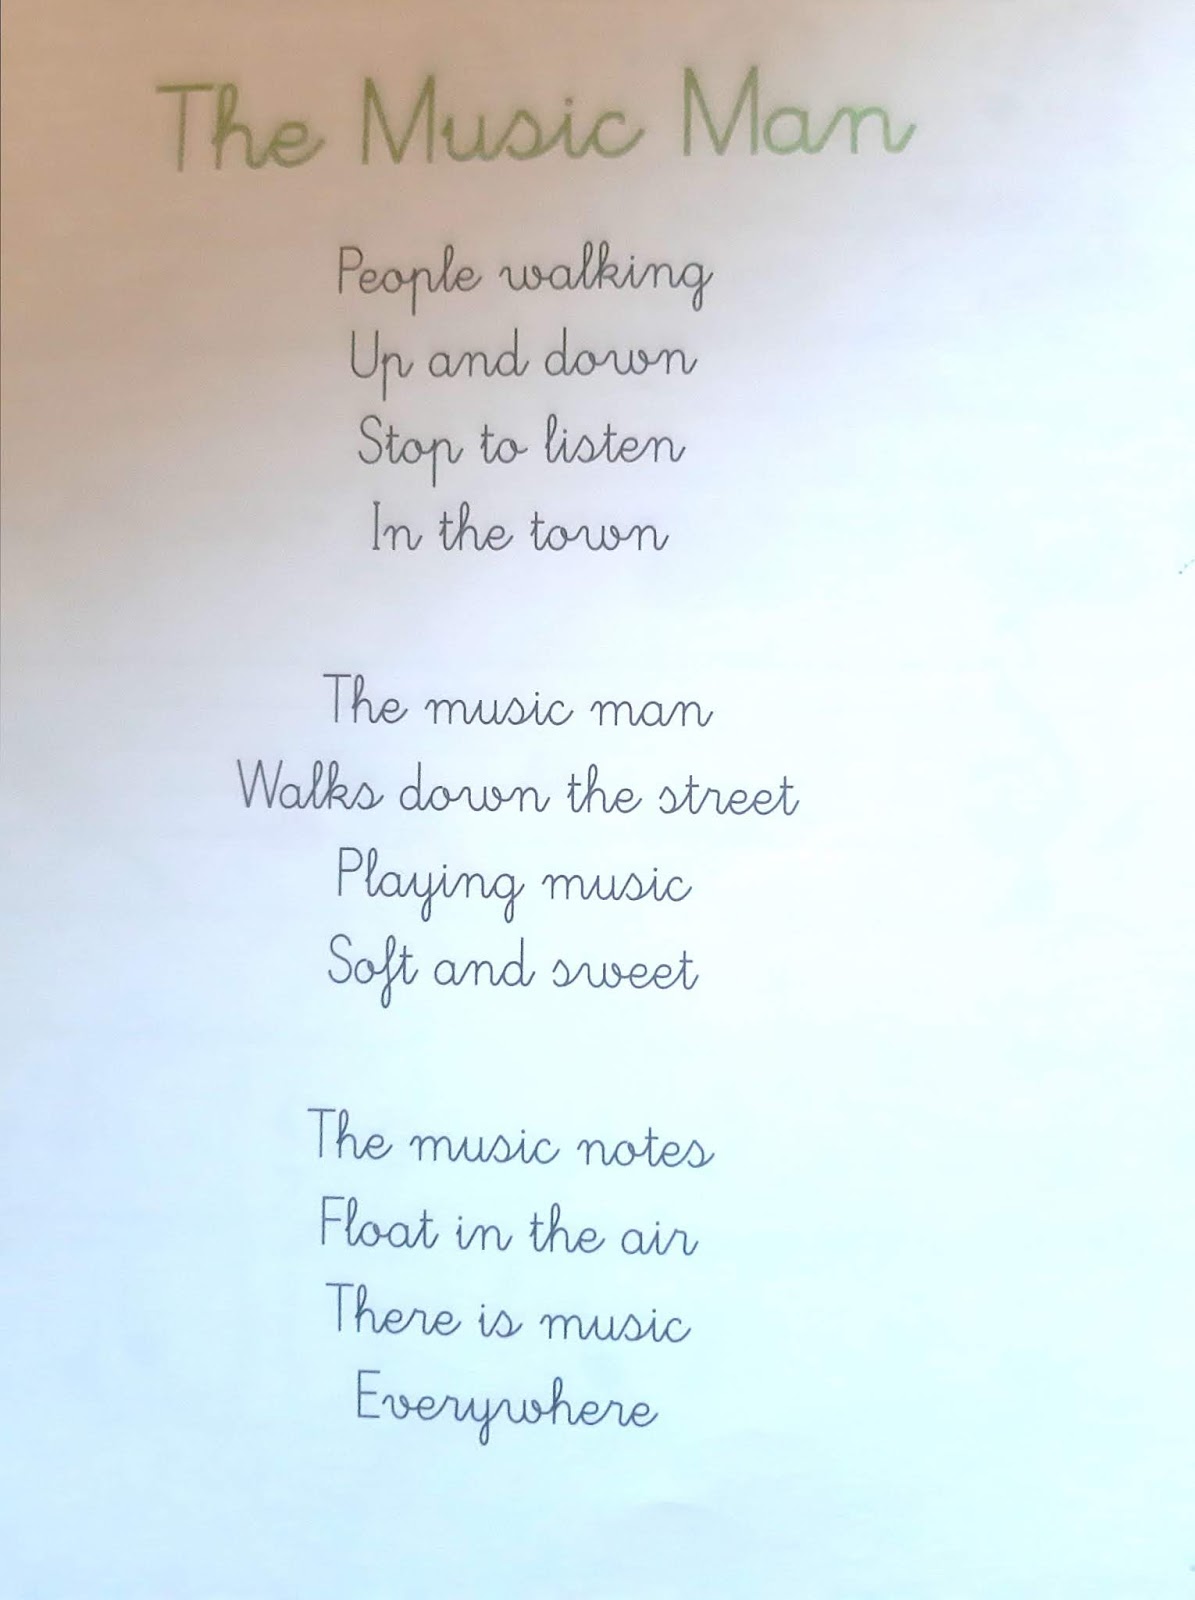 The Music Man
People walking
Up and down
Stop to listen
In the town
The music man
Walks down the street
Playing music
Soft and sweet
The music notes
Float in the air
There is music
Everywhere